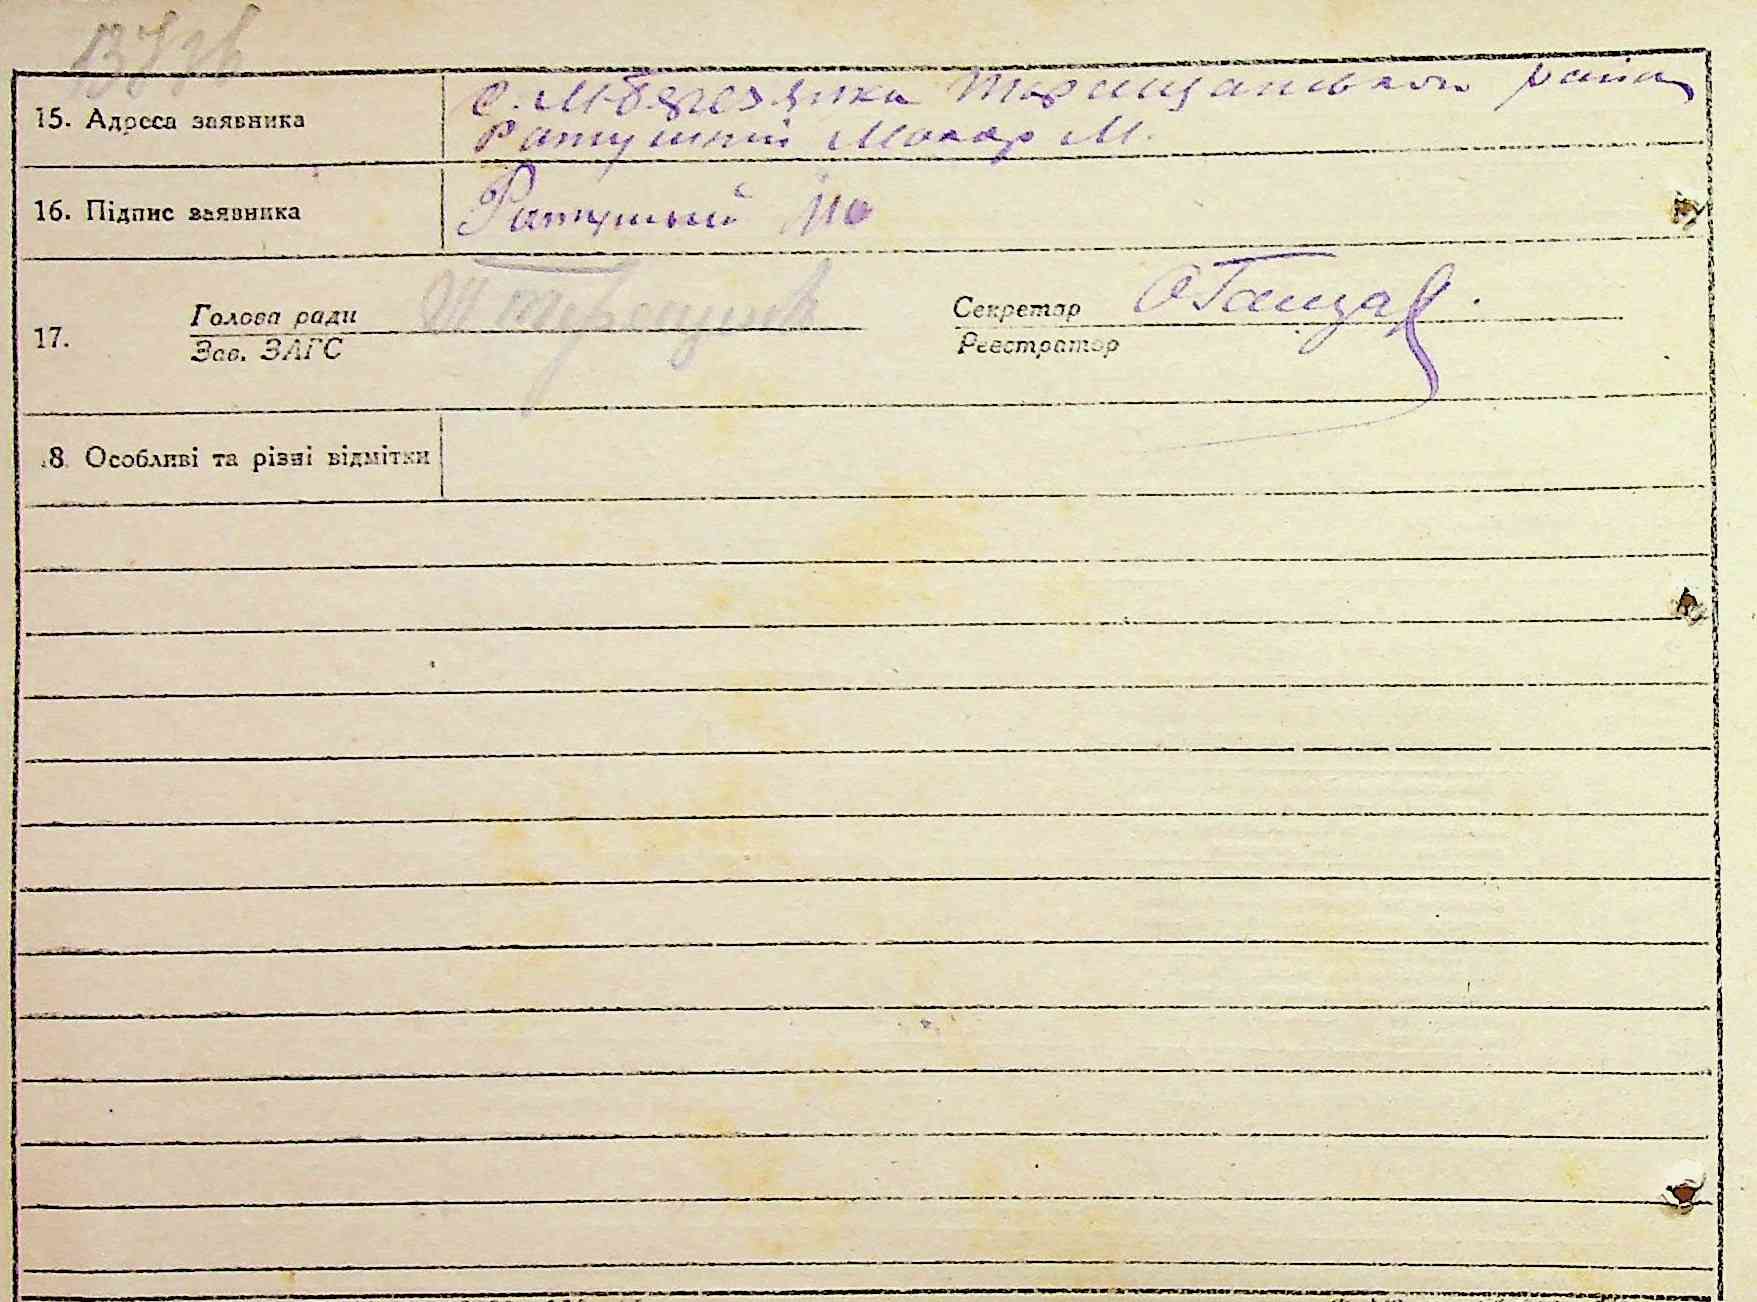 15. Адреса заявника
с. М-Березянка Таращанського району
Ратушний Макар М.
16. Підпис заявника
Ратушный
17.
Голова ради
Зав. ЗАГС
Секретар
Реєстратор
18. Особливі та різні відмітки